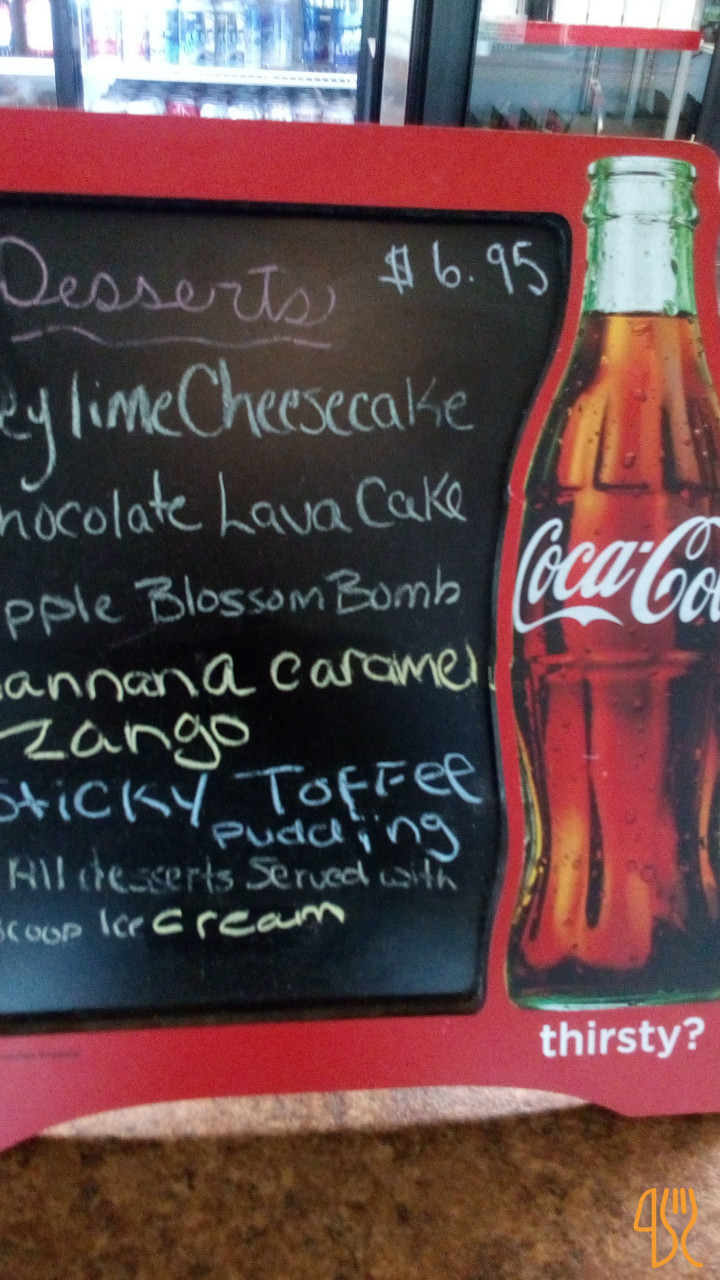 Desserts $6.95
ey lime Cheesecake
hocolate Lava Cake
pple Blossom Bomb
annana caramel
Zango
Sticky Toffee
pudding
All desserts Served with
scoop Ice cream
Coca-Col
thirsty?